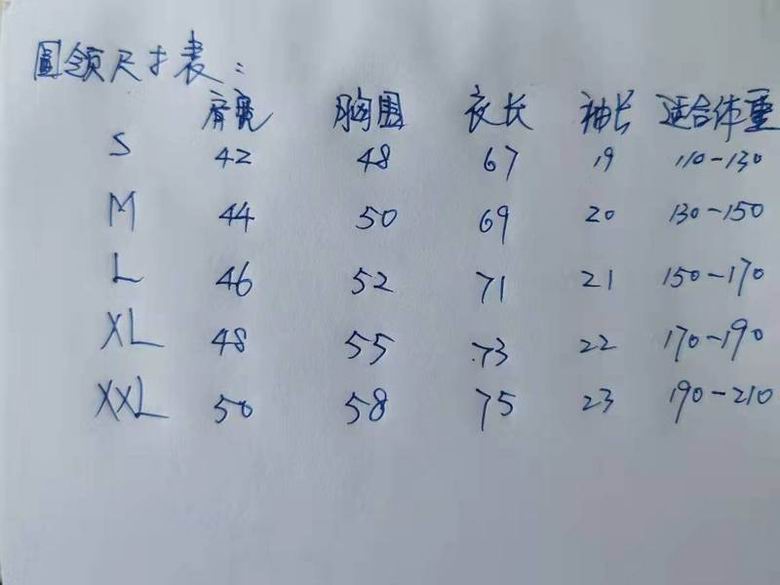 圆领尺寸表：
肩宽 胸围 衣长 袖长 适合体重
S 42 48 67 19 110-130
M 44 50 69 20 130-150
L 46 52 71 21 150-170
XL 48 55 73 22 170-190
XXL 50 58 75 23 190-210